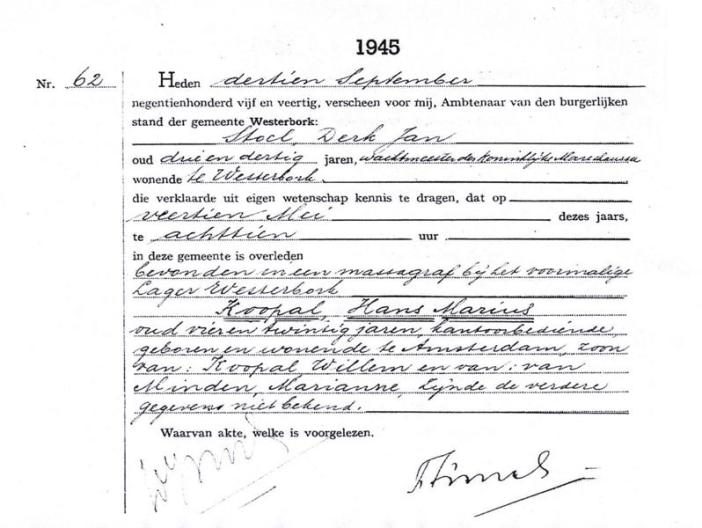 1945
Nr. 62 Heden dertien September
negentienhonderd vijf en veertig, verscheen voor mij, Ambtenaar van den burgerlijken
stand der gemeente Westerbork:
Stoel, Derk Jan
oud drie en dertig jaren, wachtmeester der Koninklijke Marechaussee
wonende te Westerbork.
die verklaarde uit eigen wetenschap kennis te dragen, dat op
veertien Mei dezes jaars,
te achttien uur
in deze gemeente is overleden
bevonden in een massagraf bij het voormalige
Lager Westerbork
Koopal, Hans Marius
oud vier en twintig jaren, kantoorbediende,
geboren en wonende te Amsterdam, zoon
van: Koopal Willem en van: van
Minden, Marianne, Zijnde de verdere
gegevens niet bekend.
Waarvan akte, welke is voorgelezen.